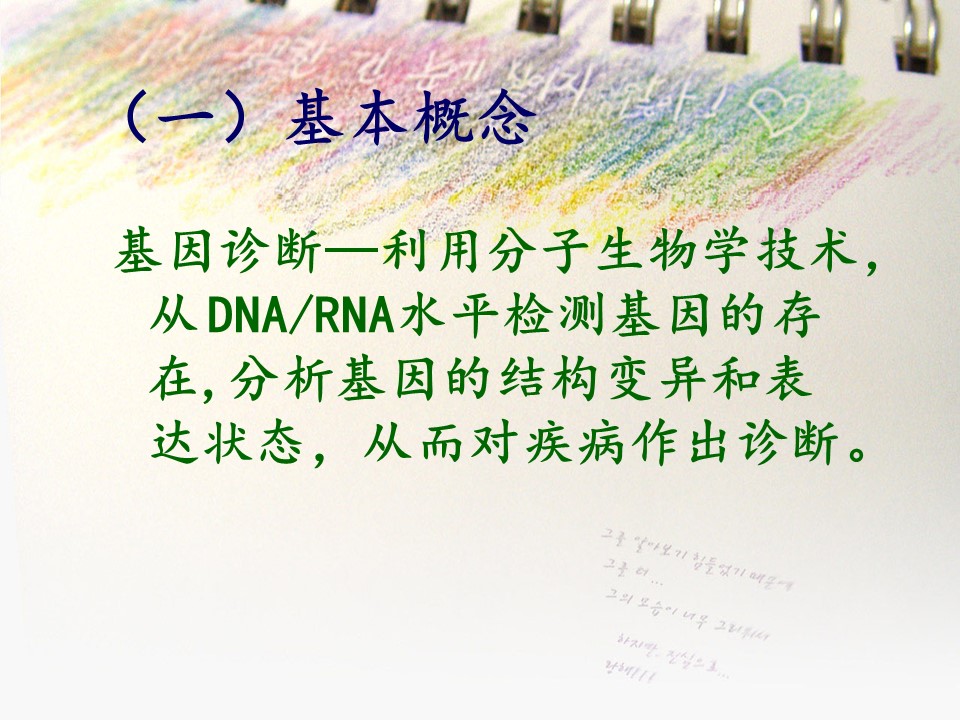 （一）基本概念
基因诊断—利用分子生物学技术，
从DNA/RNA水平检测基因的存
在,分析基因的结构变异和表
达状态，从而对疾病作出诊断。
그를 알아보기 힘들었기 때문에
그를 더...
그의 모습이 너무 그리워서
하지만 진심으로...